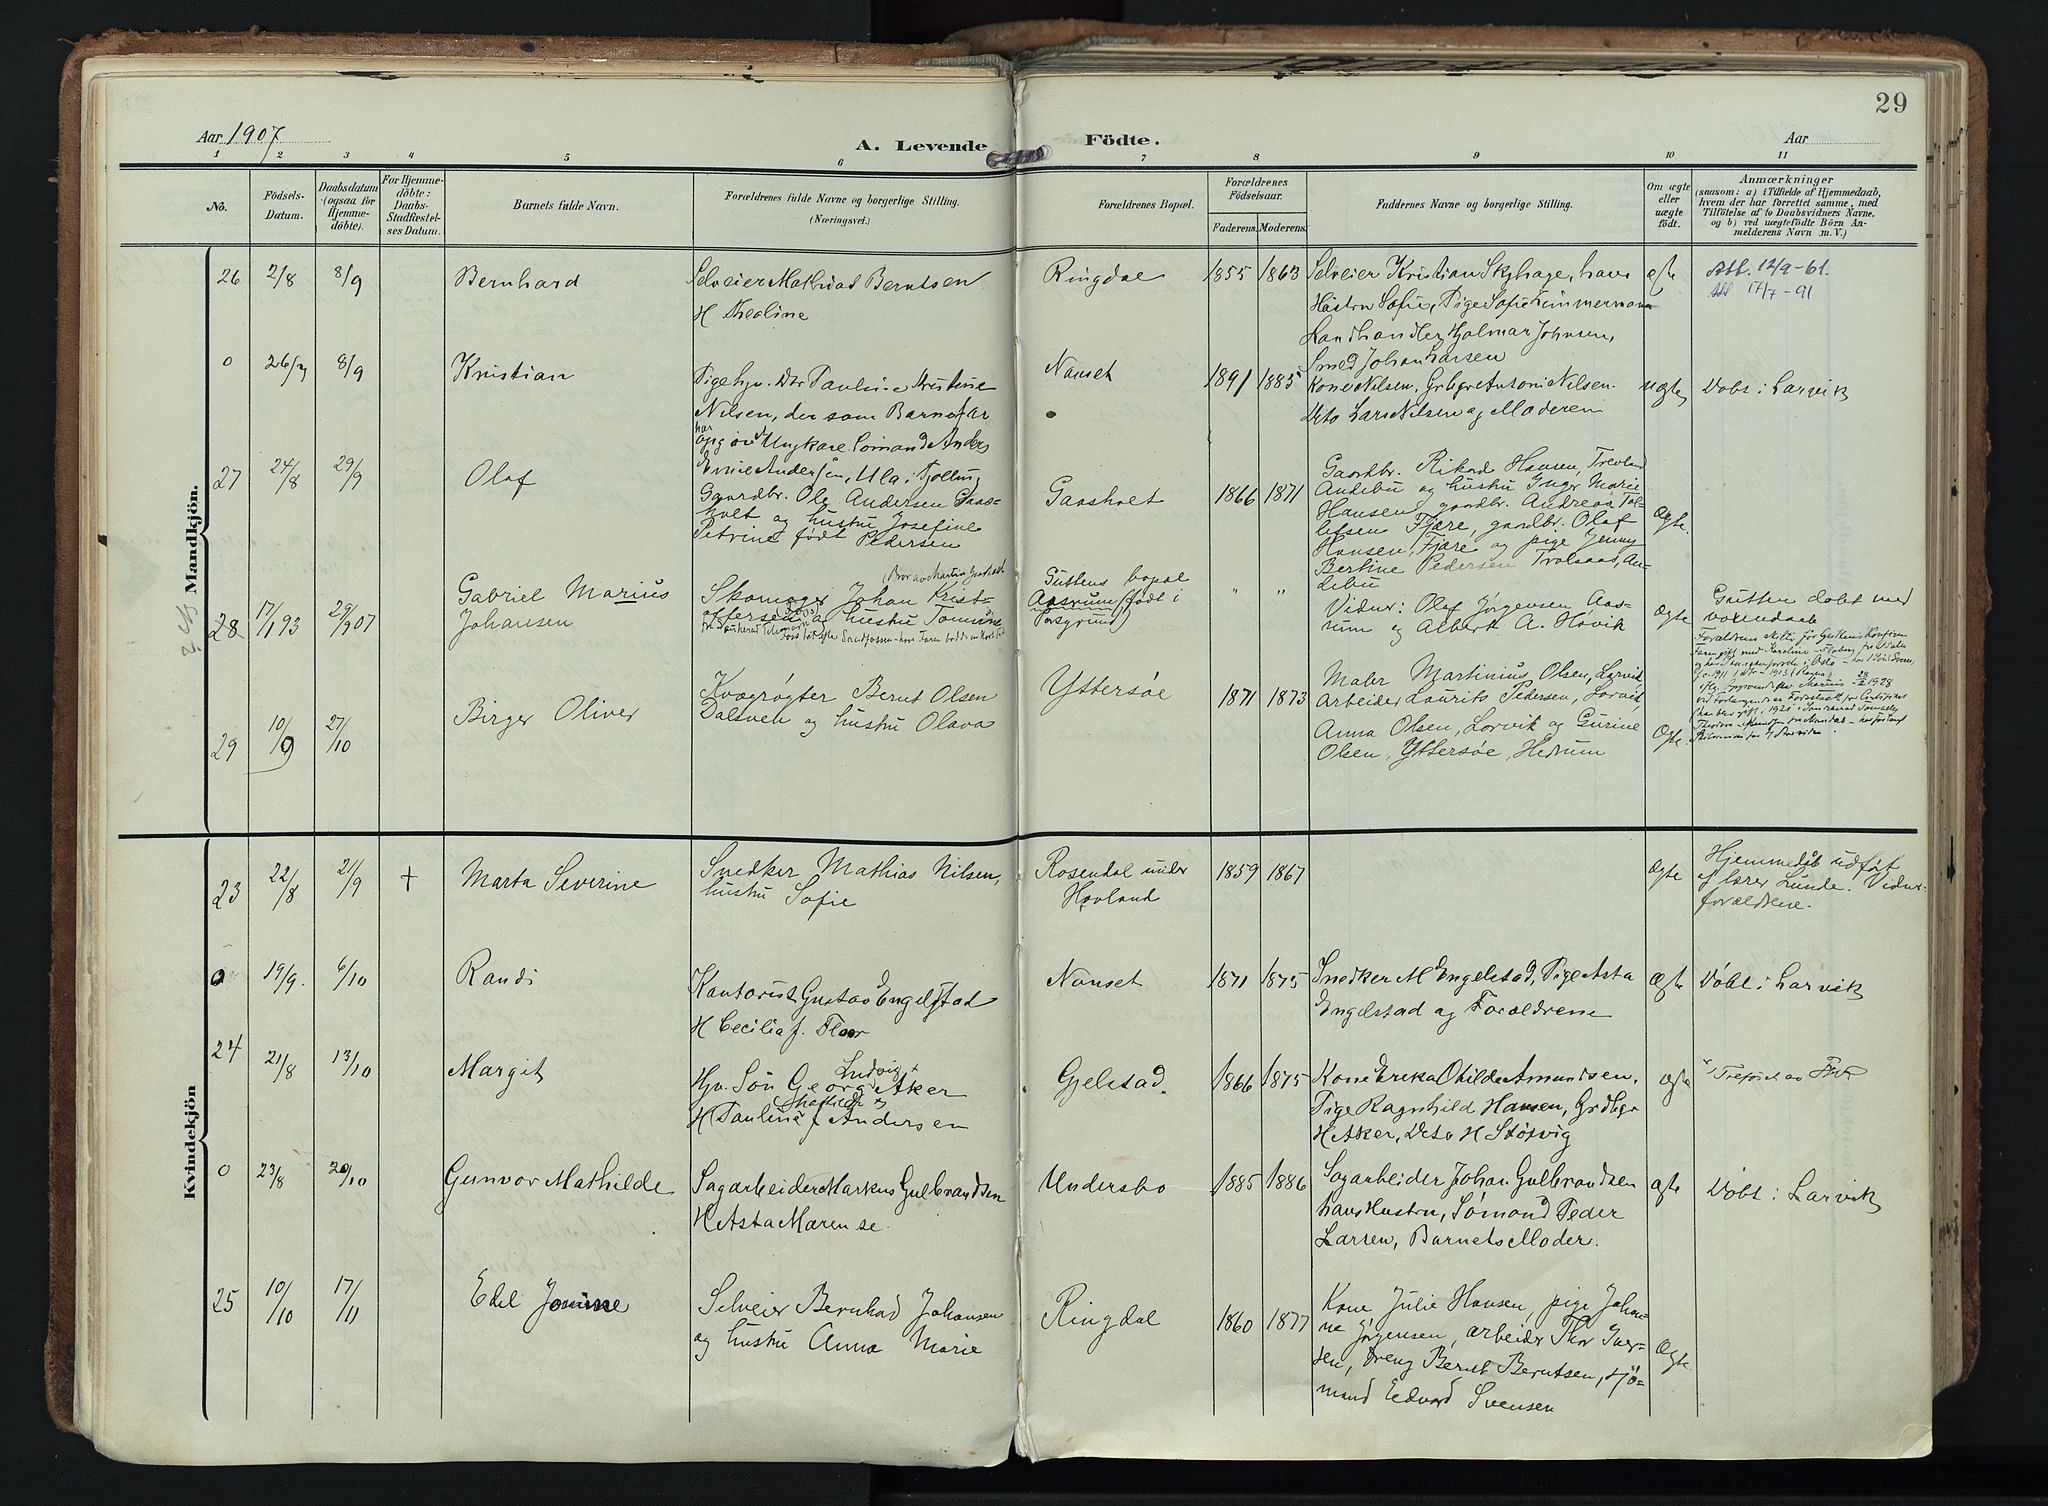 29
Aar 1907
A. Levende Födte.
Aar
1 2 3 4 5 6 7 8 9 10 11
No.
Födsels-Datum.
Daabsdatum (ogsaa for Hjemme-döbte).
For Hjemme-döbte: Daabs-Stadfæstel-ses Datum.
Barnets fulde Navn.
Forældrenes fulde Navne og borgerlige Stilling. (Næringsvei.)
Forældrenes Bopæl.
Forældrenes Födselsaar.
Faderens. Moderens.
Faddernes Navne og borgerlige Stilling.
Om ægte eller uægte födt.
Anmærkninger
(saasom: a) i Tilfælde af Hjemmedaab, hvem der har forrettet samme, med Tilföielse af to Daabsvidners Navne, og b) ved uægtefödte Börn An-melderens Navn m. V.)
Mandkjön.
26 2/8 8/9
Bernhard
Selveier Mathias Berntsen
H Thealine
Ringdal
1855 1863
Selveier Kristian Skyhage, hans
Hustru Sofie, Pige Sofie Timmermann
Landhandler Hjalmar Johnsen,
Smed Johan Larsen
ægte
Att. 12/9-61.
Att 17/7-91
0 26/7 8/9
Kristian
Pige Pauline Kristine
Nilsen, der som Barnefar
har opgivet Ungkarl Sömand Anders
Emil Andersen, Ula i Tjølling
Nanset
1891 1885
Kone Nilsen, Grbgr Antoni Nilsen.
Dito Lars Nilsen og Moderen
uægte
Döbt i Larvik
27 24/8 29/9
Olaf
Gaardbr. Ole Andersen Gaas-
holt og hustru Josefine
Petrine født Pedersen
Gaasholt
1866 1871
Gaardbr. Rikard Hansen, Trevland
Andebu og hustru Inger Marie
Hansen, gaardbr. Andreas Tol-
lefsen Fjære, gaardbr. Olaf
Hansen, Fjære og pige Jenny
Bertine Pedersen Trolsaas, An-
debu
Ægte
28 17/1 93 29/9 07
Gabriel Marius
Johansen
Skomager Johan Krist-
offersen og hustru Tomine
Guttens bopæl
Aasrum (født i
Porsgrund)
" "
Vidner: Olaf Jørgensen Aas-
rum og Albert A. Hovik
Ægte
Gutten døbt med
voxendaab
29 10/9 27/10
Birger Oliver
Kvægrøgter Bernt Olsen
Dalsven og hustru Olava
Yttersøe
1871 1873
Maler Martinius Olsen, Larvik,
Arbeider Laurits Pedersen, Larvik,
Anna Olsen, Larvik og Gurine
Olsen, Yttersøe, Hedrum
Ægte.
Kvindekjön
23 22/8 21/9 +
Marta Severine
Snedker Mathias Nilsen,
hustru Sofie
Rosendal under
Hovland
1859 1867
Ægte
Hjemmedåb udført
af lærer Lunde. Vidner
forældrene.
0 19/9. 6/10
Randi
Kantorist Gustav Engelstad
H Cecilia f. Floor
Nanset
1871 1875
Snedker M Engelstad, Pige Asta
Engelstad og Forældrene
Ægte
Döbt i Larvik
24 21/8 13/10
Margit
Hjv. Søn Georg Ludvig Aker
H Pauline Mathilde f Andersen
Gjelstad.
1866 1875
Kone Ereka Othilde Amundsen.
Pige Ragnhild Hansen, Grdbgr
H Aker, Dito H Støtvig
ægte
0 23/8 20/10
Gunvor Mathilde
Sagarbeider Markus Gulbrandsen
H Asta Marense
Undersbo
1885 1886
Sagarbeider Johan Gulbrandsen
hans Hustru, Sømand Peder
Larsen, Barnets Moder.
ægte
Döbt i Larvik
25 10/10 17/11
Edel Jonine
Selveier Bernhard Johansen
og hustru Anna Marie
Ringdal
1860 1877
Kone Julie Hansen, pige Johan-
ne Jørgensen, arbeider Thor Iver-
sen, dreng Bernt Berntsen, sjö-
mand Edvard Svensen
Ægte